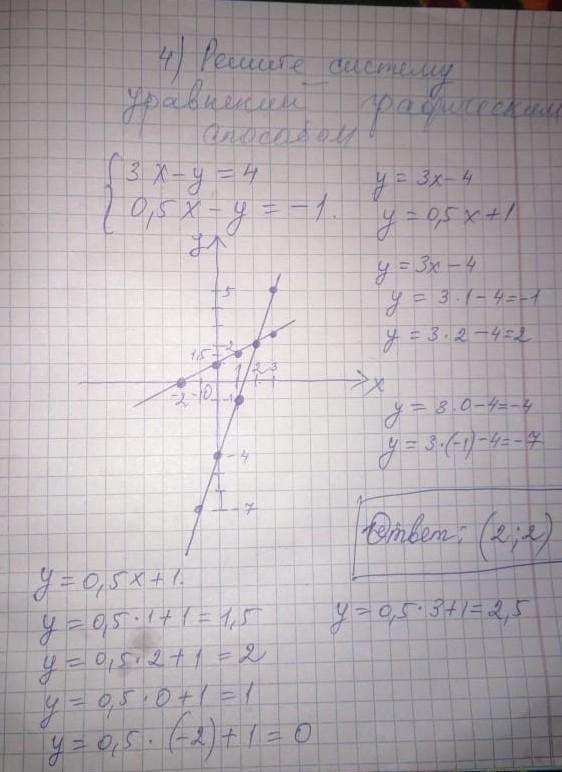 4) Решите систему
уравнений графическим
способом
{ 3x-y=4
0,5x-y=-1.
y=3x-4
y=0,5x+1
y=3x-4
y=3·1-4=-1
y=3·2-4=2
y=3·0-4=-4
y=3·(-1)-4=-7
y
5
2
1,5
1 2 3
x
-2 -1 0
-1
-4
-7
Ответ: (2;2)
y=0,5x+1.
y=0,5·1+1=1,5
y=0,5·2+1=2
y=0,5·0+1=1
y=0,5·(-2)+1=0
y=0,5·3+1=2,5